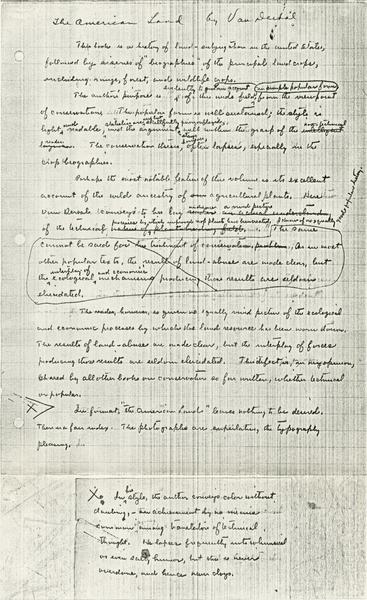 The American Land by Van Dersal
This book is a history of land-using in the United States,
followed by a series of "biographies" of the principal land crops,
including range, forest, and wildlife crops.
evidently to give an account in simple popular form
The author's purpose is of this wide field, from the viewpoint
of conservation. The popular form is well sustained; its style is
light, readable, and the argument well within the grasp of the
The conservation thesis, often lapses, especially in the
crop biographies.
Perhaps the most notable feature of this volume is its excellent
account of the wild ancestry of our agricultural plants. Here
Van Dersal conveys to his lay
of the technical "The same
cannot be said for his treatment of conservation problems. As in most
other popular texts, the results of land-abuse are made clear, but
interplay of and economic
the ecological mechanisms producing these results are seldom
elucidated.
The reader, however, is given no equally vivid picture of the ecological
and economic processes by which the land resource has been worn down.
The results of land-abuse are made clear, but the interplay of forces
producing those results are seldom elucidated. This defect is, in my opinion,
shared by all other books on conservation so far written, whether technical
or popular.
X In format, "The American Land" leaves nothing to be desired.
There is a fair index. The photographs are superlative, the typography
pleasing.
X In his style, the author conveys color without
daubing, - an achievement by no means
common among translators of technical
thought. He lapses frequently into whimsical
or even salty humor, but this is never
overdone, and hence never cloys.